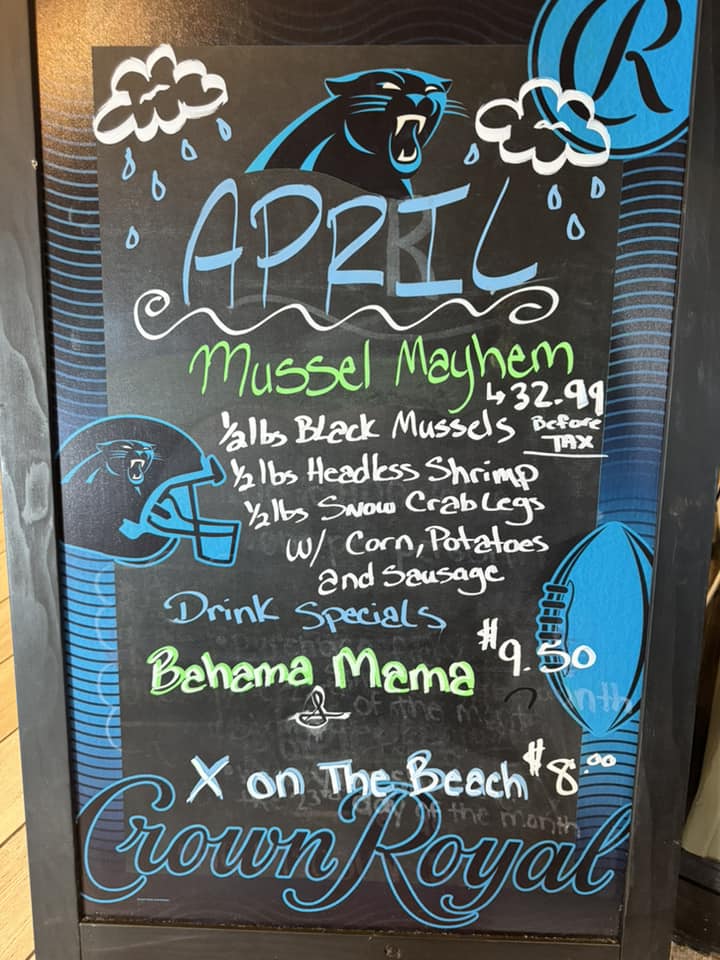 R
APRIL
Mussel Mayhem
↳ 32.99
Before
TAX
½ lbs Black Mussels
½ lbs Headless Shrimp
½ lbs Snow Crab Legs
w/ Corn, Potatoes
and Sausage
Drink Specials
Bahama Mama $9.50
&
of the month
X on The Beach $8.00
day of the month
Crown Royal